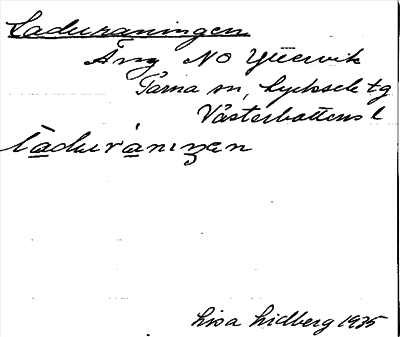 Laduraningen
Äng NO Yttervik
Tärna sn, Lycksele tg
Västerbottens l
laduråniŋen
Lisa Lidberg 1935